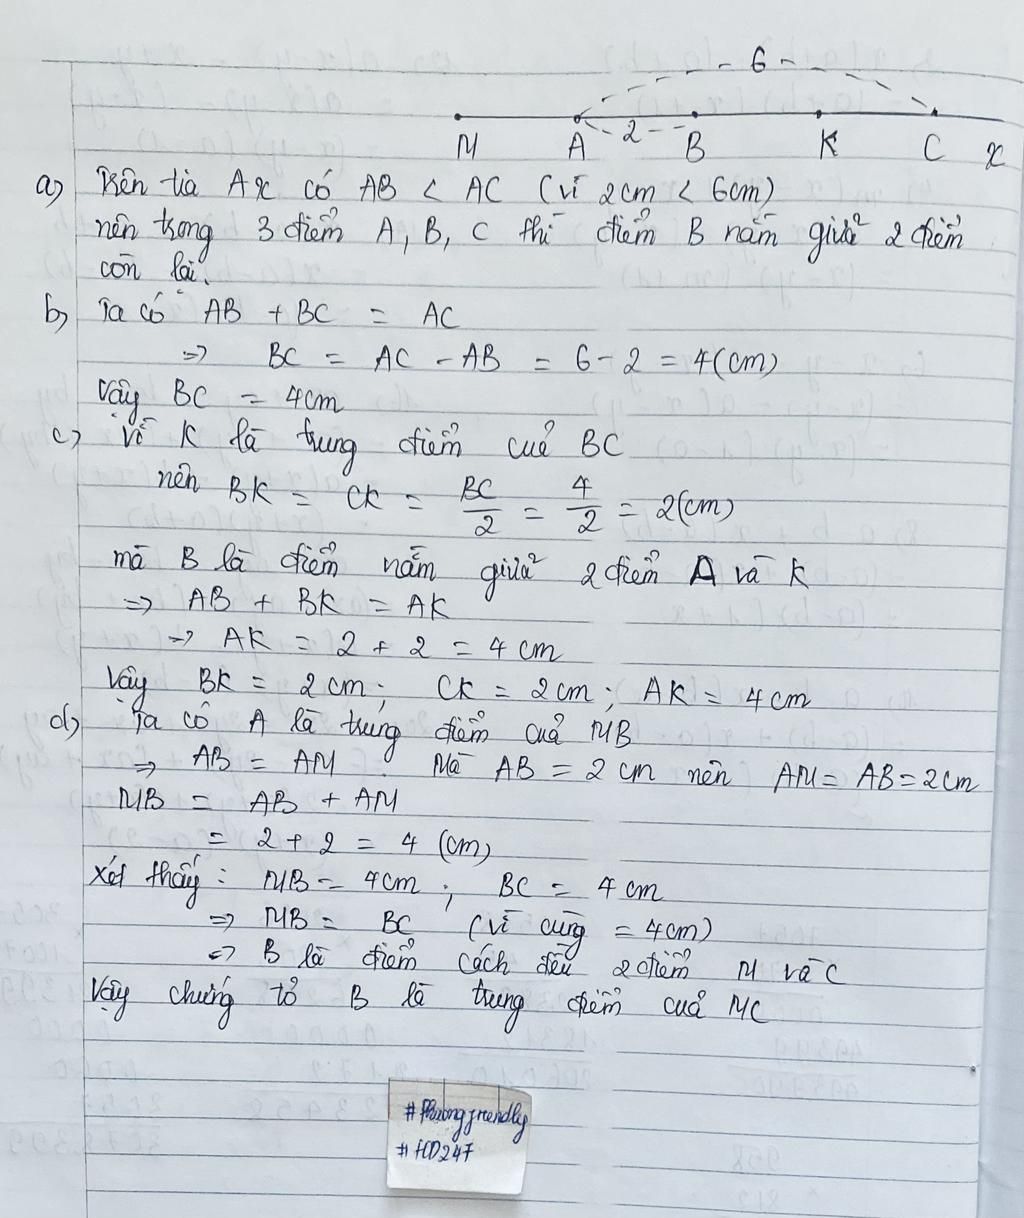 - 6 -
- 2 -
M A B K C x
a) Trên tia Ax có AB < AC (vì 2cm < 6cm)
nên trong 3 điểm A, B, C thì điểm B nằm giữa 2 điểm
còn lại.
b) Ta có AB + BC = AC
=> BC = AC - AB = 6 - 2 = 4 (cm)
Vậy BC = 4cm
c) Vì K là trung điểm của BC
nên BK = CK = BC/2 = 4/2 = 2 (cm)
mà B là điểm nằm giữa 2 điểm A và K
=> AB + BK = AK
=> AK = 2 + 2 = 4 cm
Vậy BK = 2 cm; CK = 2 cm; AK = 4 cm
d) Ta có A là trung điểm của MB
=> AB = AM. Mà AB = 2 cm nên AM = AB = 2 cm
MB = AB + AM
= 2 + 2 = 4 (cm)
Xét thấy: MB = 4 cm; BC = 4 cm
=> MB = BC (vì cùng = 4cm)
=> B là điểm cách đều 2 điểm M và C
Vậy chứng tỏ B là trung điểm của MC
#Phuongfriendly
#HD247